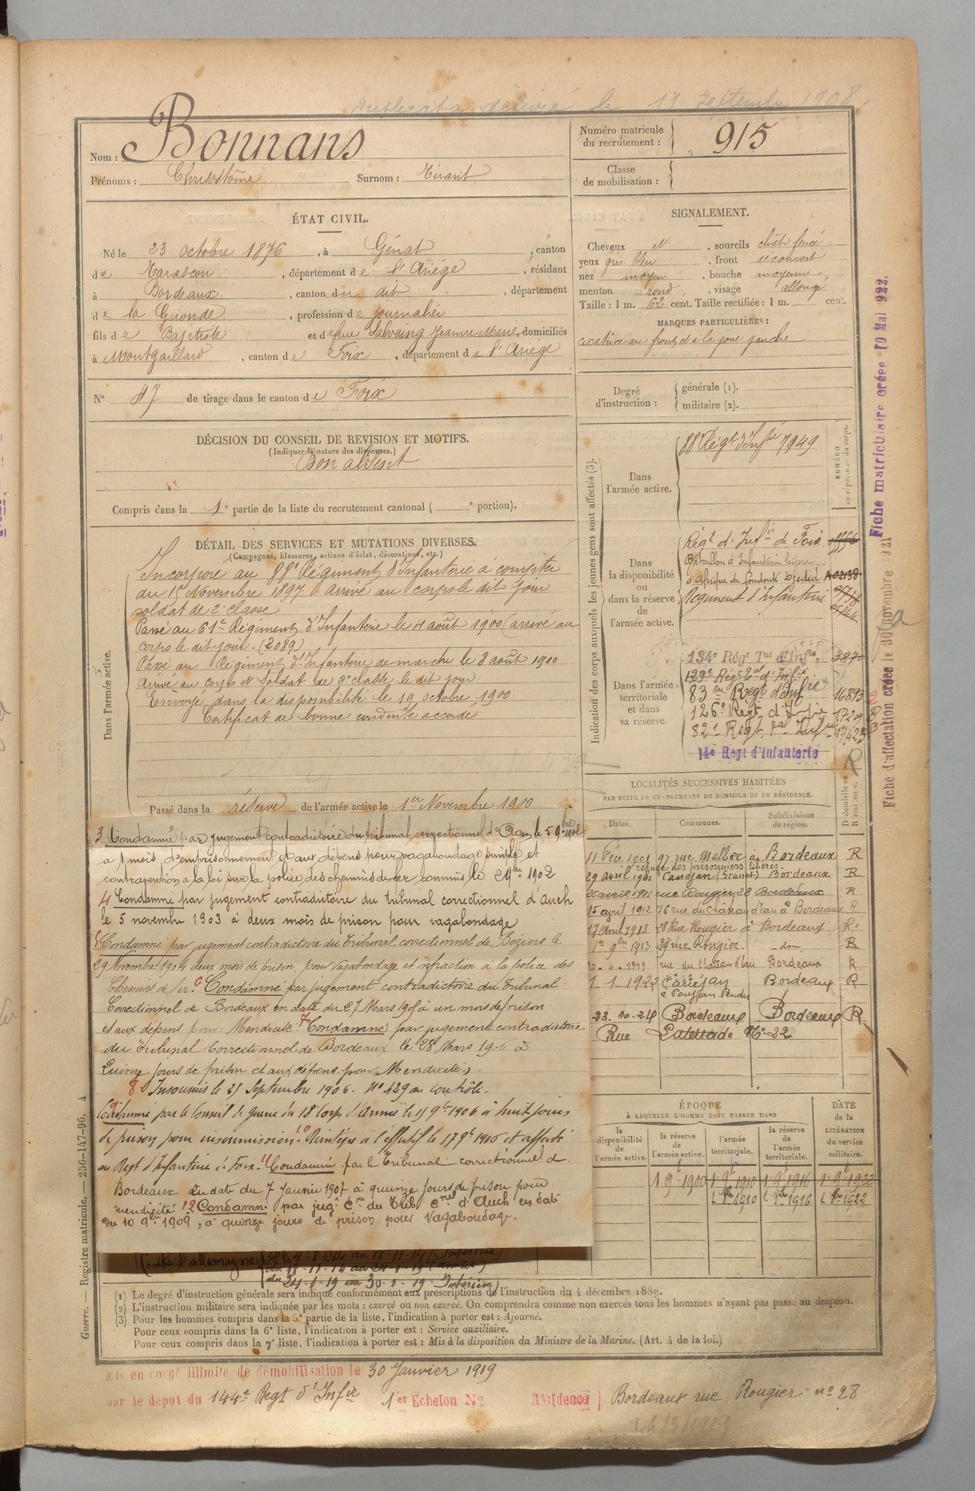 Duplicata délivré le 17 Septembre 1908
Nom : Bonnans
Prénoms : Chrisostôme Surnom : Tirant
Numéro matricule du recrutement : 915
Classe de mobilisation :
ÉTAT CIVIL.
Né le 23 octobre 1876, à Génat, canton
de Tarascon, département de l'Ariége, résidant
à Bordeaux, canton du dit, département
de la Gironde, profession de journalier
fils de Baptiste et de feue Salvaing Jeanne Marie, domiciliés
à Montgaillard, canton de Foix, département de l'Ariège
N° 47 de tirage dans le canton de Foix
SIGNALEMENT.
Cheveux N, sourcils chât. foncé
yeux gris bleu, front découvert
nez moyen, bouche moyenne,
menton rond, visage allongé
Taille : 1 m. 62 cent. Taille rectifiée : 1 m. cent.
MARQUES PARTICULIÈRES :
cicatrice au front et à la joue gauche
Degré d'instruction : générale (1).
militaire (2).
DÉCISION DU CONSEIL DE REVISION ET MOTIFS.
(Indiquer la nature des dispenses.)
Bon absent
Compris dans la 1e partie de la liste du recrutement cantonal ( e portion).
DÉTAIL DES SERVICES ET MUTATIONS DIVERSES.
(Campagnes, blessures, actions d'éclat, décorations, etc.)
Dans l'armée active.
Incorporé au 88e Régiment d'Infanterie à compter
du 16 Novembre 1897 arrivé au corps le dit jour
soldat de 2e classe
Passé au 61e Régiment d'Infanterie le 4 août 1900 (arrivé au
corps le dit jour. (2089)
Passé au Régiment d'Infanterie de marche le 8 août 1900
Arrivé au corps et soldat de 2e classe le dit jour
Envoyé dans la disponibilité le 19 octobre 1900
Certificat de bonne conduite accordé
Passé dans la réserve de l'armée active le 1er Novembre 1900
3 Condamné par jugement contradictoire du tribunal correctionnel d'Agen le 5 9bre 1902
à 1 mois d'emprisonnement et aux dépens pour vagabondage simple et
contravention à la loi sur la police des chemins de fer commis le 9bre 1902
4 Condamné par jugement contradictoire du tribunal correctionnel d'Auch
le 5 novembre 1903 à deux mois de prison pour vagabondage
5 Condamné par jugement contradictoire du Tribunal correctionnel de Béziers le
29 Novembre 1904 deux mois de prison, pour vagabondage et infraction à la police des
Chemins de fer. 6 Condamné par jugement contradictoire du Tribunal
Correctionnel de Bordeaux en date du 27 Mars 1905 à un mois de prison
et aux dépens pour Mendicité 7 Condamné par jugement contradictoire
du Tribunal Correctionnel de Bordeaux le 28 Mars 1906 à
Quinze jours de prison et aux dépens pour Mendicité.
8 Insoumis le 21 Septembre 1906. N° 429 au contrôle.
Condamné par le Conseil de guerre du 18e Corps d'Armée le 15 9bre 1906 à huit jours
de prison pour insoumission. 10 Réintégré à l'effectif le 17 9bre 1906 et affecté
au Regt d'Infanterie de Foix. 11 Condamné par le Tribunal correctionnel de
Bordeaux en date du 7 Janvier 1907 à quinze jours de prison pour
mendicité 12 Condamné par jugt Cre du Tribl Cnel d'Auch en date
du 10 9bre 1909, à quinze jours de prison pour Vagabondage.
Contre l'Allemagne
du 24-1-19 au 30-1-19 Intérieur)
Indication des corps auxquels les jeunes gens sont affectés (3).
Dans l'armée active.
88e Régt d'Infie 7949
Dans la disponibilité ou dans la réserve de l'armée active.
Régt d'Infie de Foix
Bataillon d'Infanterie légère
d'Afrique
Régiment d'Infanterie
Dans l'armée territoriale et dans sa réserve.
134e Régt Tal d'Infie 3870
129e Régt Tal d'Infie
83e Regt d'Infie 16893
126e Regt d'Infie
82e Régt tal Infie 17423
14e Regt d'Infanterie
LOCALITÉS SUCCESSIVES HABITÉES
PAR SUITE DE CHANGEMENTS DE DOMICILE OU DE RÉSIDENCE.
Dates. Communes. Subdivisions de région.
11 Fév. 1901 97 rue Malbec à Bordeaux R
refuge des prisonniers libérés.
29 Avril 1901 Canéjan Bordeaux R
avril 1911 rue Rougier 28 Bordeaux R
15 avril 1912 76 rue du Château d'eau à Bordeaux R
17 Avril 1913 28 Rue Rougier à Bordeaux R
1er 9bre 1913 28 rue Rougier. -do- R
1913 rue du Château d'Eau Bordeaux R
1 1 1922 Canéjan Bordeaux R
23.10.24 Bordeaux Bordeaux R
Rue
ÉPOQUE
À LAQUELLE L'HOMME DOIT PASSER DANS
DATE de la LIBÉRATION du service militaire.
la disponibilité de l'armée active. la réserve de l'armée active. l'armée territoriale. la réserve de l'armée territoriale.
1 9bre 1900 1 9bre 1910 1 9bre 1916 1 9bre 1922
1 9bre 1910 1 9bre 1916 1 9bre 1922
Fiche matriculaire créée 10 Mai 922.
Fiche d'affectation créée le 30 novembre 921
Guerre. — Registre matricule. — 256-147-96. 4
(1) Le degré d'instruction générale sera indiqué conformément aux prescriptions de l'instruction du 4 décembre 1889.
(2) L'instruction militaire sera indiquée par les mots : exercé ou non exercé. On comprendra comme non exercés tous les hommes n'ayant pas passé au drapeau.
(3) Pour les hommes compris dans la 5e partie de la liste, l'indication à porter est : Ajourné.
Pour ceux compris dans la 6e liste, l'indication à porter est : Service auxiliaire.
Pour ceux compris dans la 7e liste, l'indication à porter est : Mis à la disposition du Ministre de la Marine. (Art. 4 de la loi.)
Mis en congé illimité de démobilisation le 30 Janvier 1919
par le dépôt du 144e Regt d'Infie 1er Echelon N° Résidence Bordeaux rue Rougier n° 28